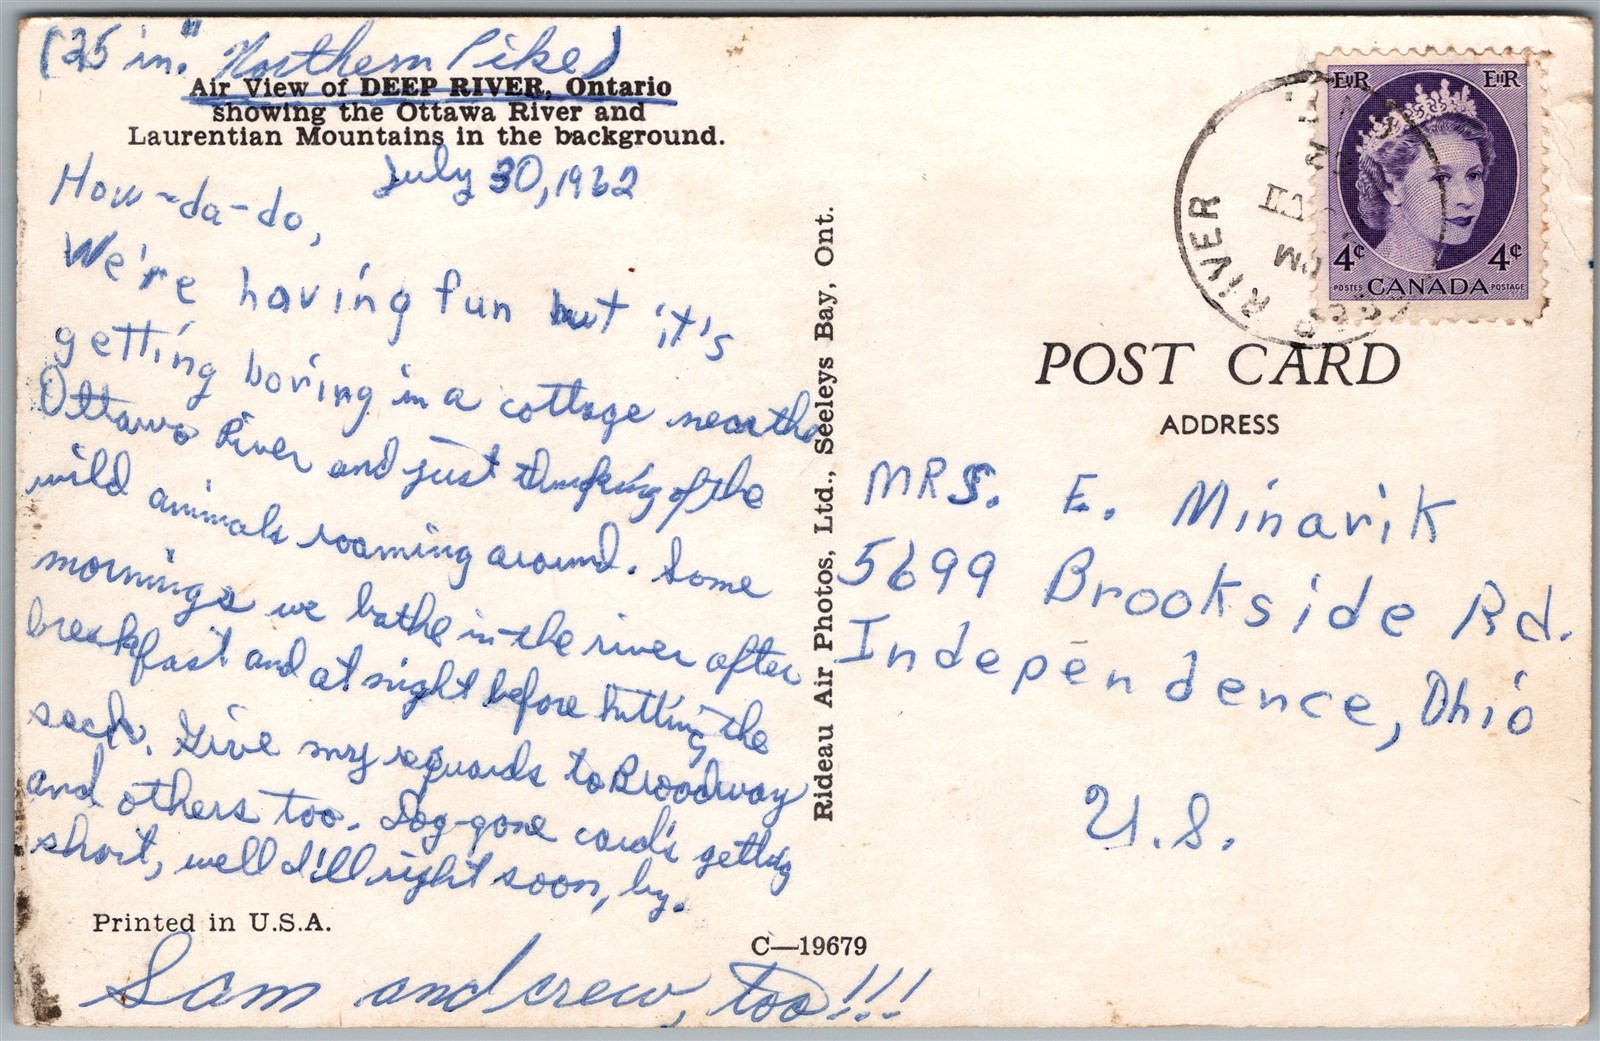 (25 in." Northern Pike)
Air View of DEEP RIVER, Ontario
showing the Ottawa River and
Laurentian Mountains in the background.
July 30, 1962
How-da-do,
We're having fun but it's
getting boring in a cottage near the
Ottawa River and just thinking of the
wild animals roaming around. Some
mornings we bathe in the river after
breakfast and at night before hitting the
sack. Give my reguards to Broadway
and others too. Dog-gone card's getting
short, well I'll right soon, by.
Printed in U.S.A.
C—19679
Sam and crew, too!!!
Rideau Air Photos, Ltd., Seeleys Bay, Ont.
EIIR EIIR
4¢ 4¢
POSTES CANADA POSTAGE
DEEP RIVER
PM
VII
POST CARD
ADDRESS
MRS. E. Minarik
5699 Brookside Rd.
Independence, Ohio
U.S.